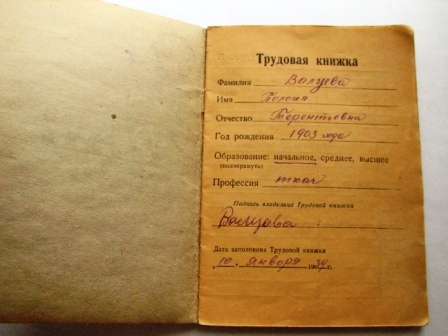 Трудовая книжка
Фамилия Валуева
Имя
Отчество Терентьевна
Год рождения 1903 года
Образование: начальное, среднее, высшее
(подчеркнуть)
Профессия ткач
Подпись владельца Трудовой книжки
Валуева
Дата заполнения Трудовой книжки
10. января 1939 г.